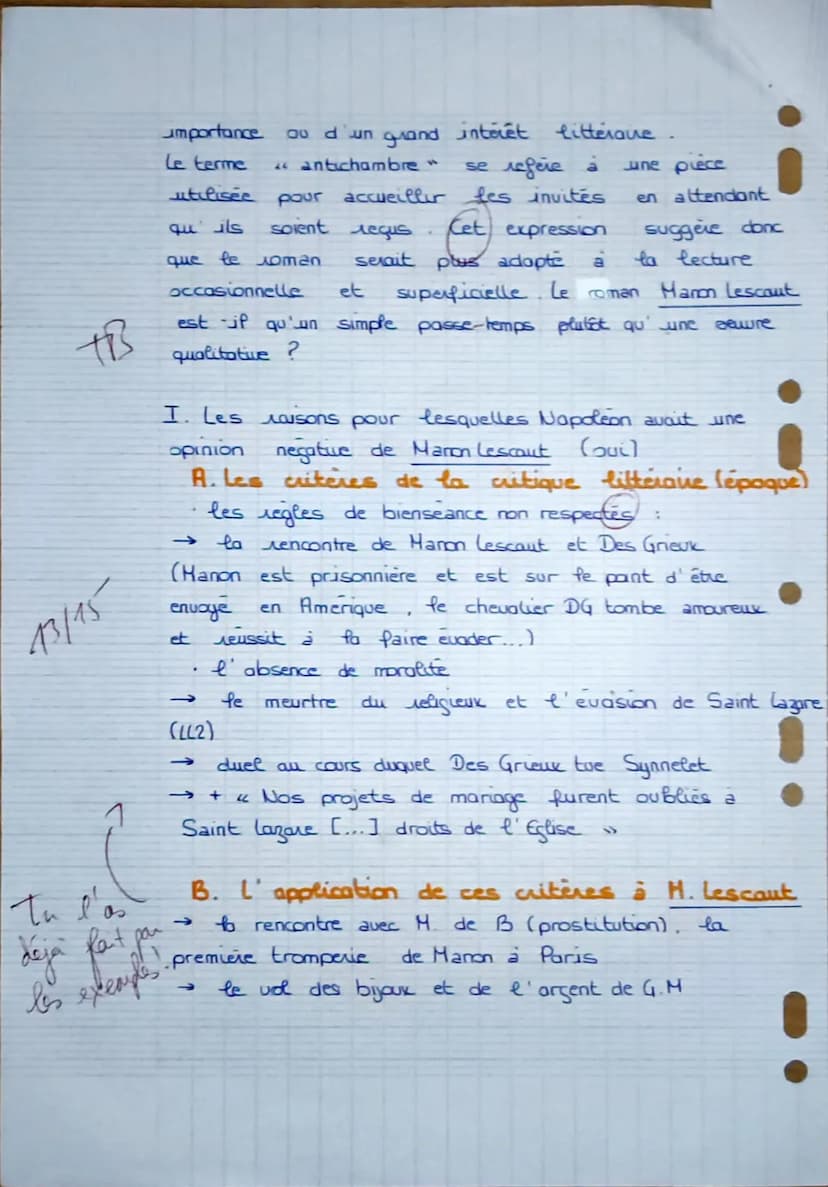 importance ou d'un grand intérêt littéraire.
Le terme " antichambre " se refère à une pièce
utilisée pour accueillir les invités en attendant
qu'ils soient reçus. Cet expression suggère donc
que le roman serait plus adapté à la lecture
occasionnelle et superficielle. Le roman Manon Lescaut
est-il qu'un simple passe-temps plutôt qu'une oeuvre
qualitative ?
TB
I. Les raisons pour lesquelles Napoléon avait une
opinion négative de Manon Lescaut (oui)
A. Les critères de la critique littéraire (époque)
· les règles de bienséance non respectés :
→ la rencontre de Manon Lescaut et Des Grieux
(Manon est prisonnière et est sur le point d'être
envoyé en Amérique, le chevalier DG tombe amoureux
et réussit à la faire évader...)
13/15
· l'absence de moralité
→ le meurtre du religieux et l'évasion de Saint Lazare
(LL2)
→ duel au cours duquel Des Grieux tue Synnelet
→ + « Nos projets de mariage furent oubliés à
Saint Lazare [...] droits de l'Eglise »
B. L'application de ces critères à M. Lescaut
→ la rencontre avec M. de B (prostitution), la
première tromperie de Manon à Paris
→ le vol des bijoux et de l'argent de G.M
Tu l'as
déjà fait par
les exemples !